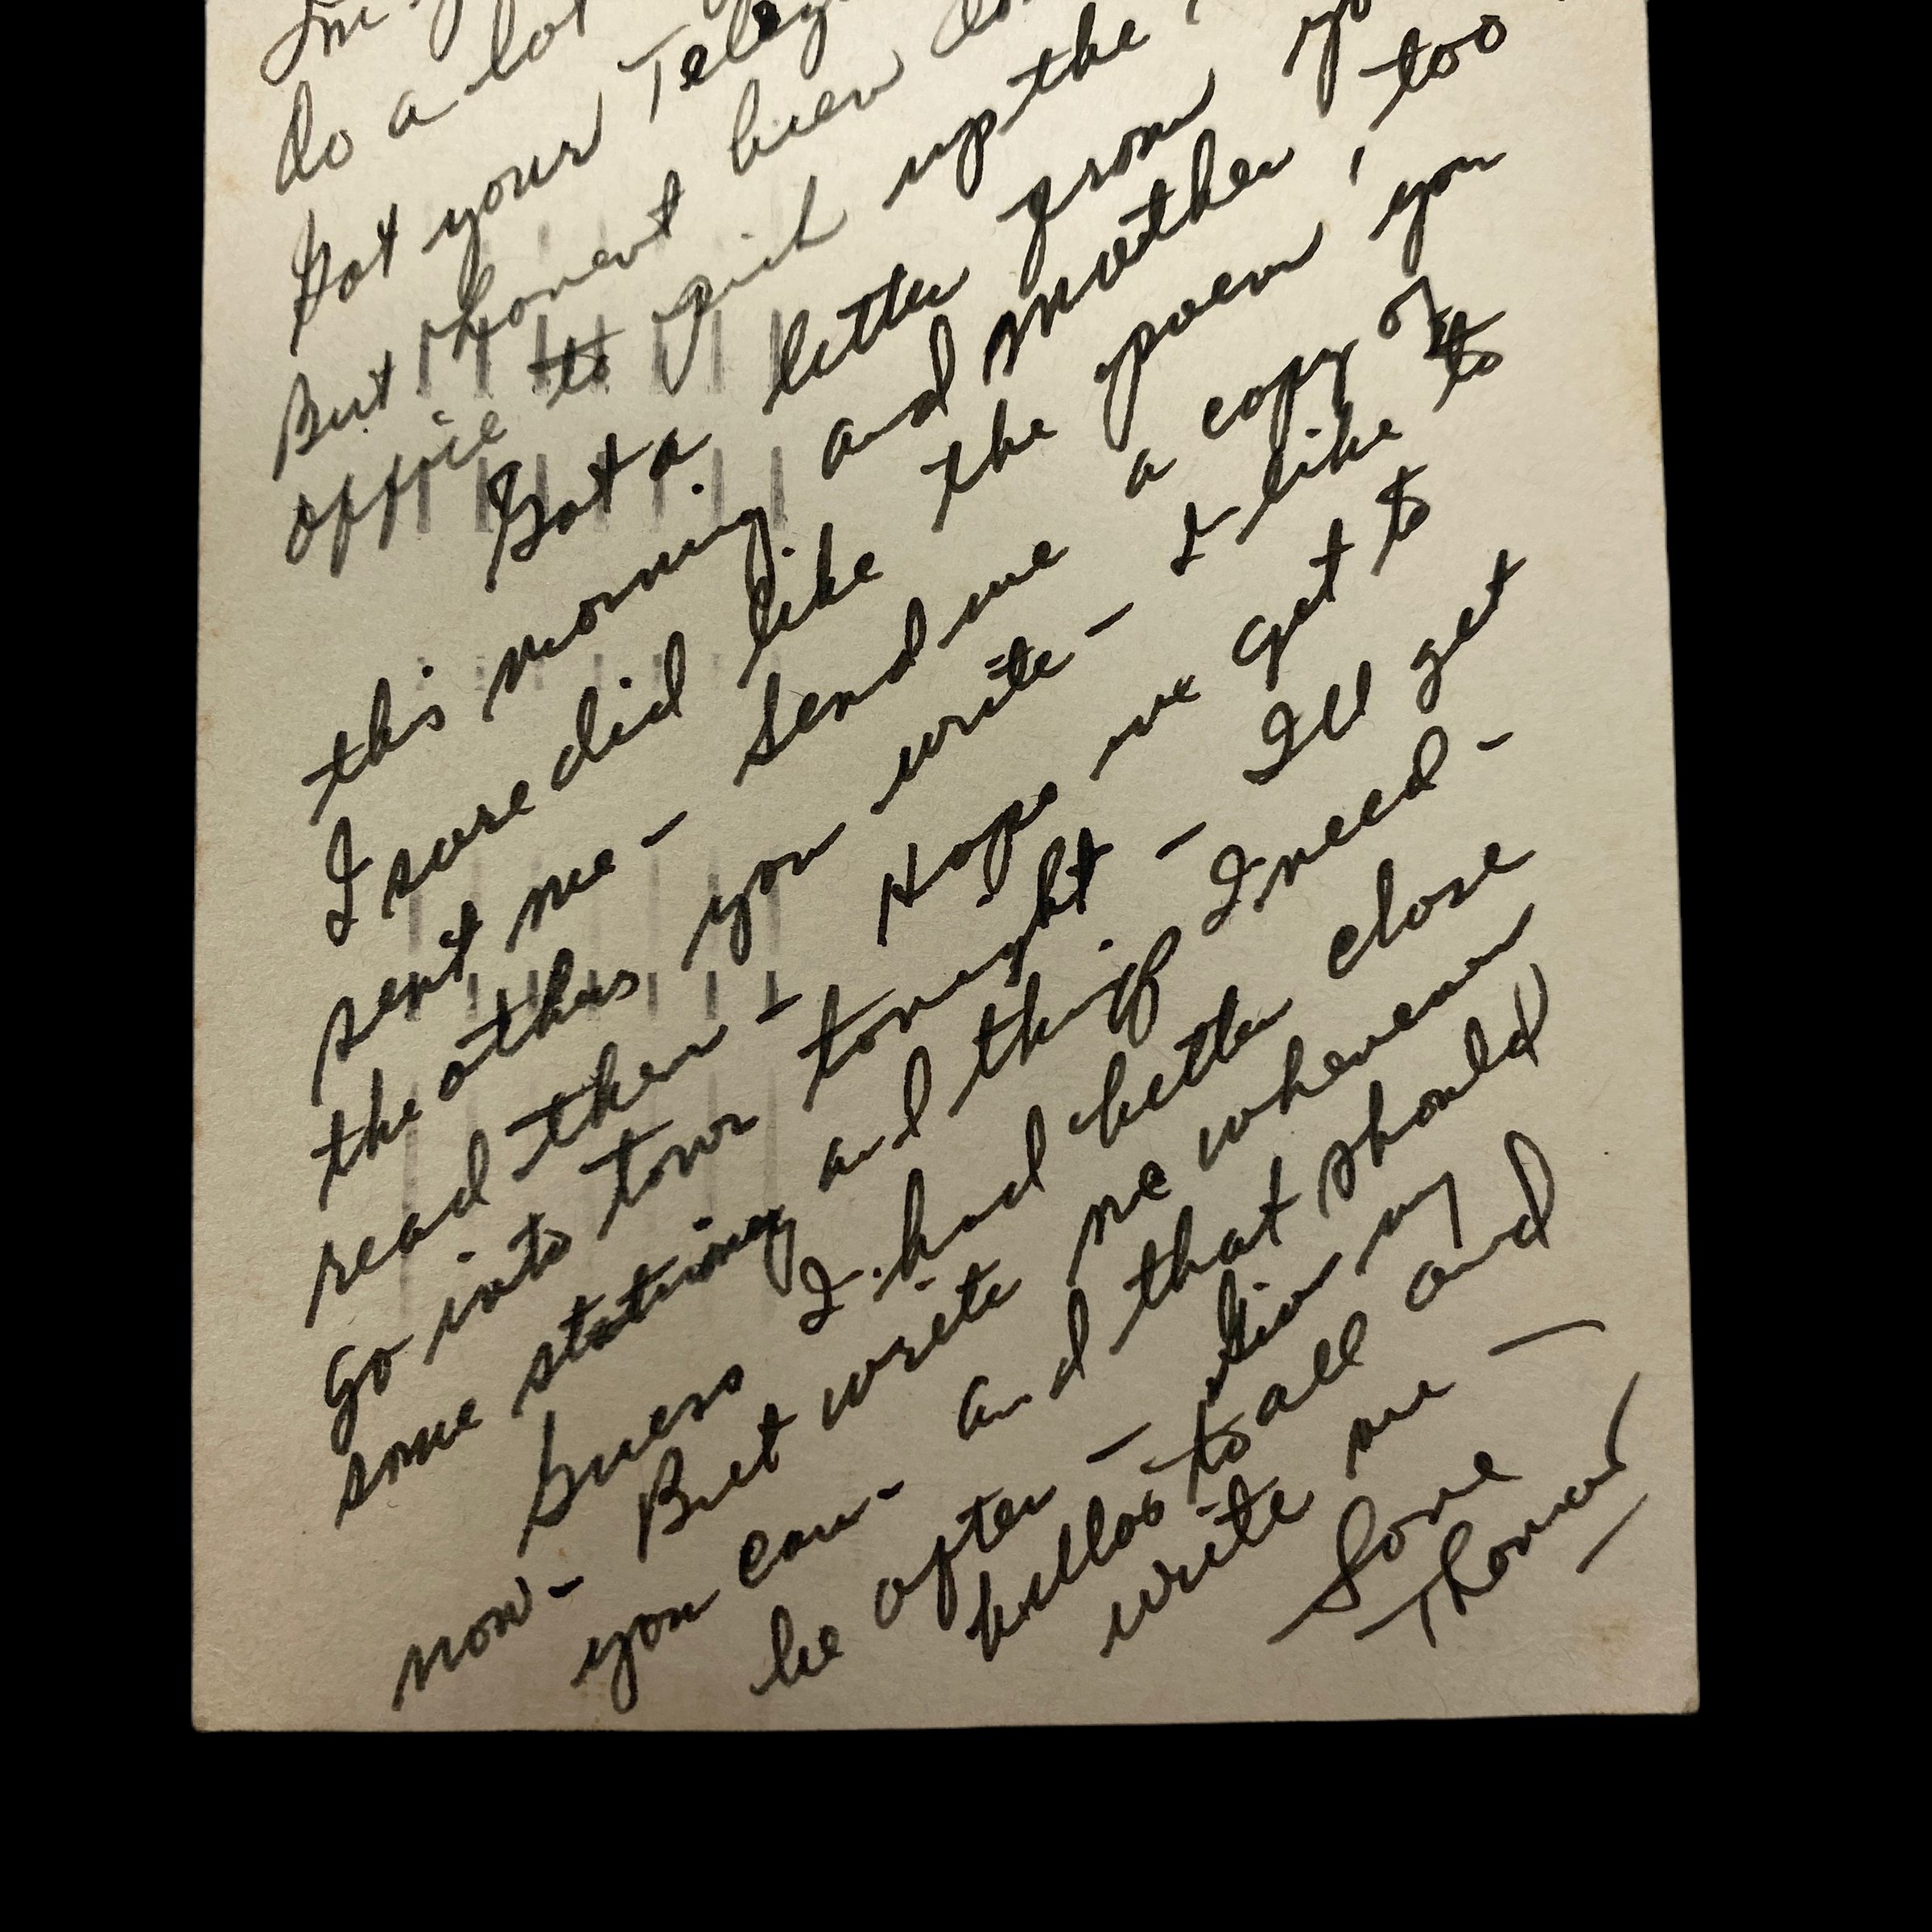 do a lot
Got your Teleg
But I havent been do
office to pick up the
Got a letter from yo
this morning and mother, too
I sure did like the poem you
sent me - Send me a copy of
the others you write - I like to
read them - Hope we get to
go into town tonight - I'll get
some stationy and things I need -
Guess I had better close
now - But write me whenever
you can - and that should
be often - Give my
hellos to all and
write me -
Love
Thomas